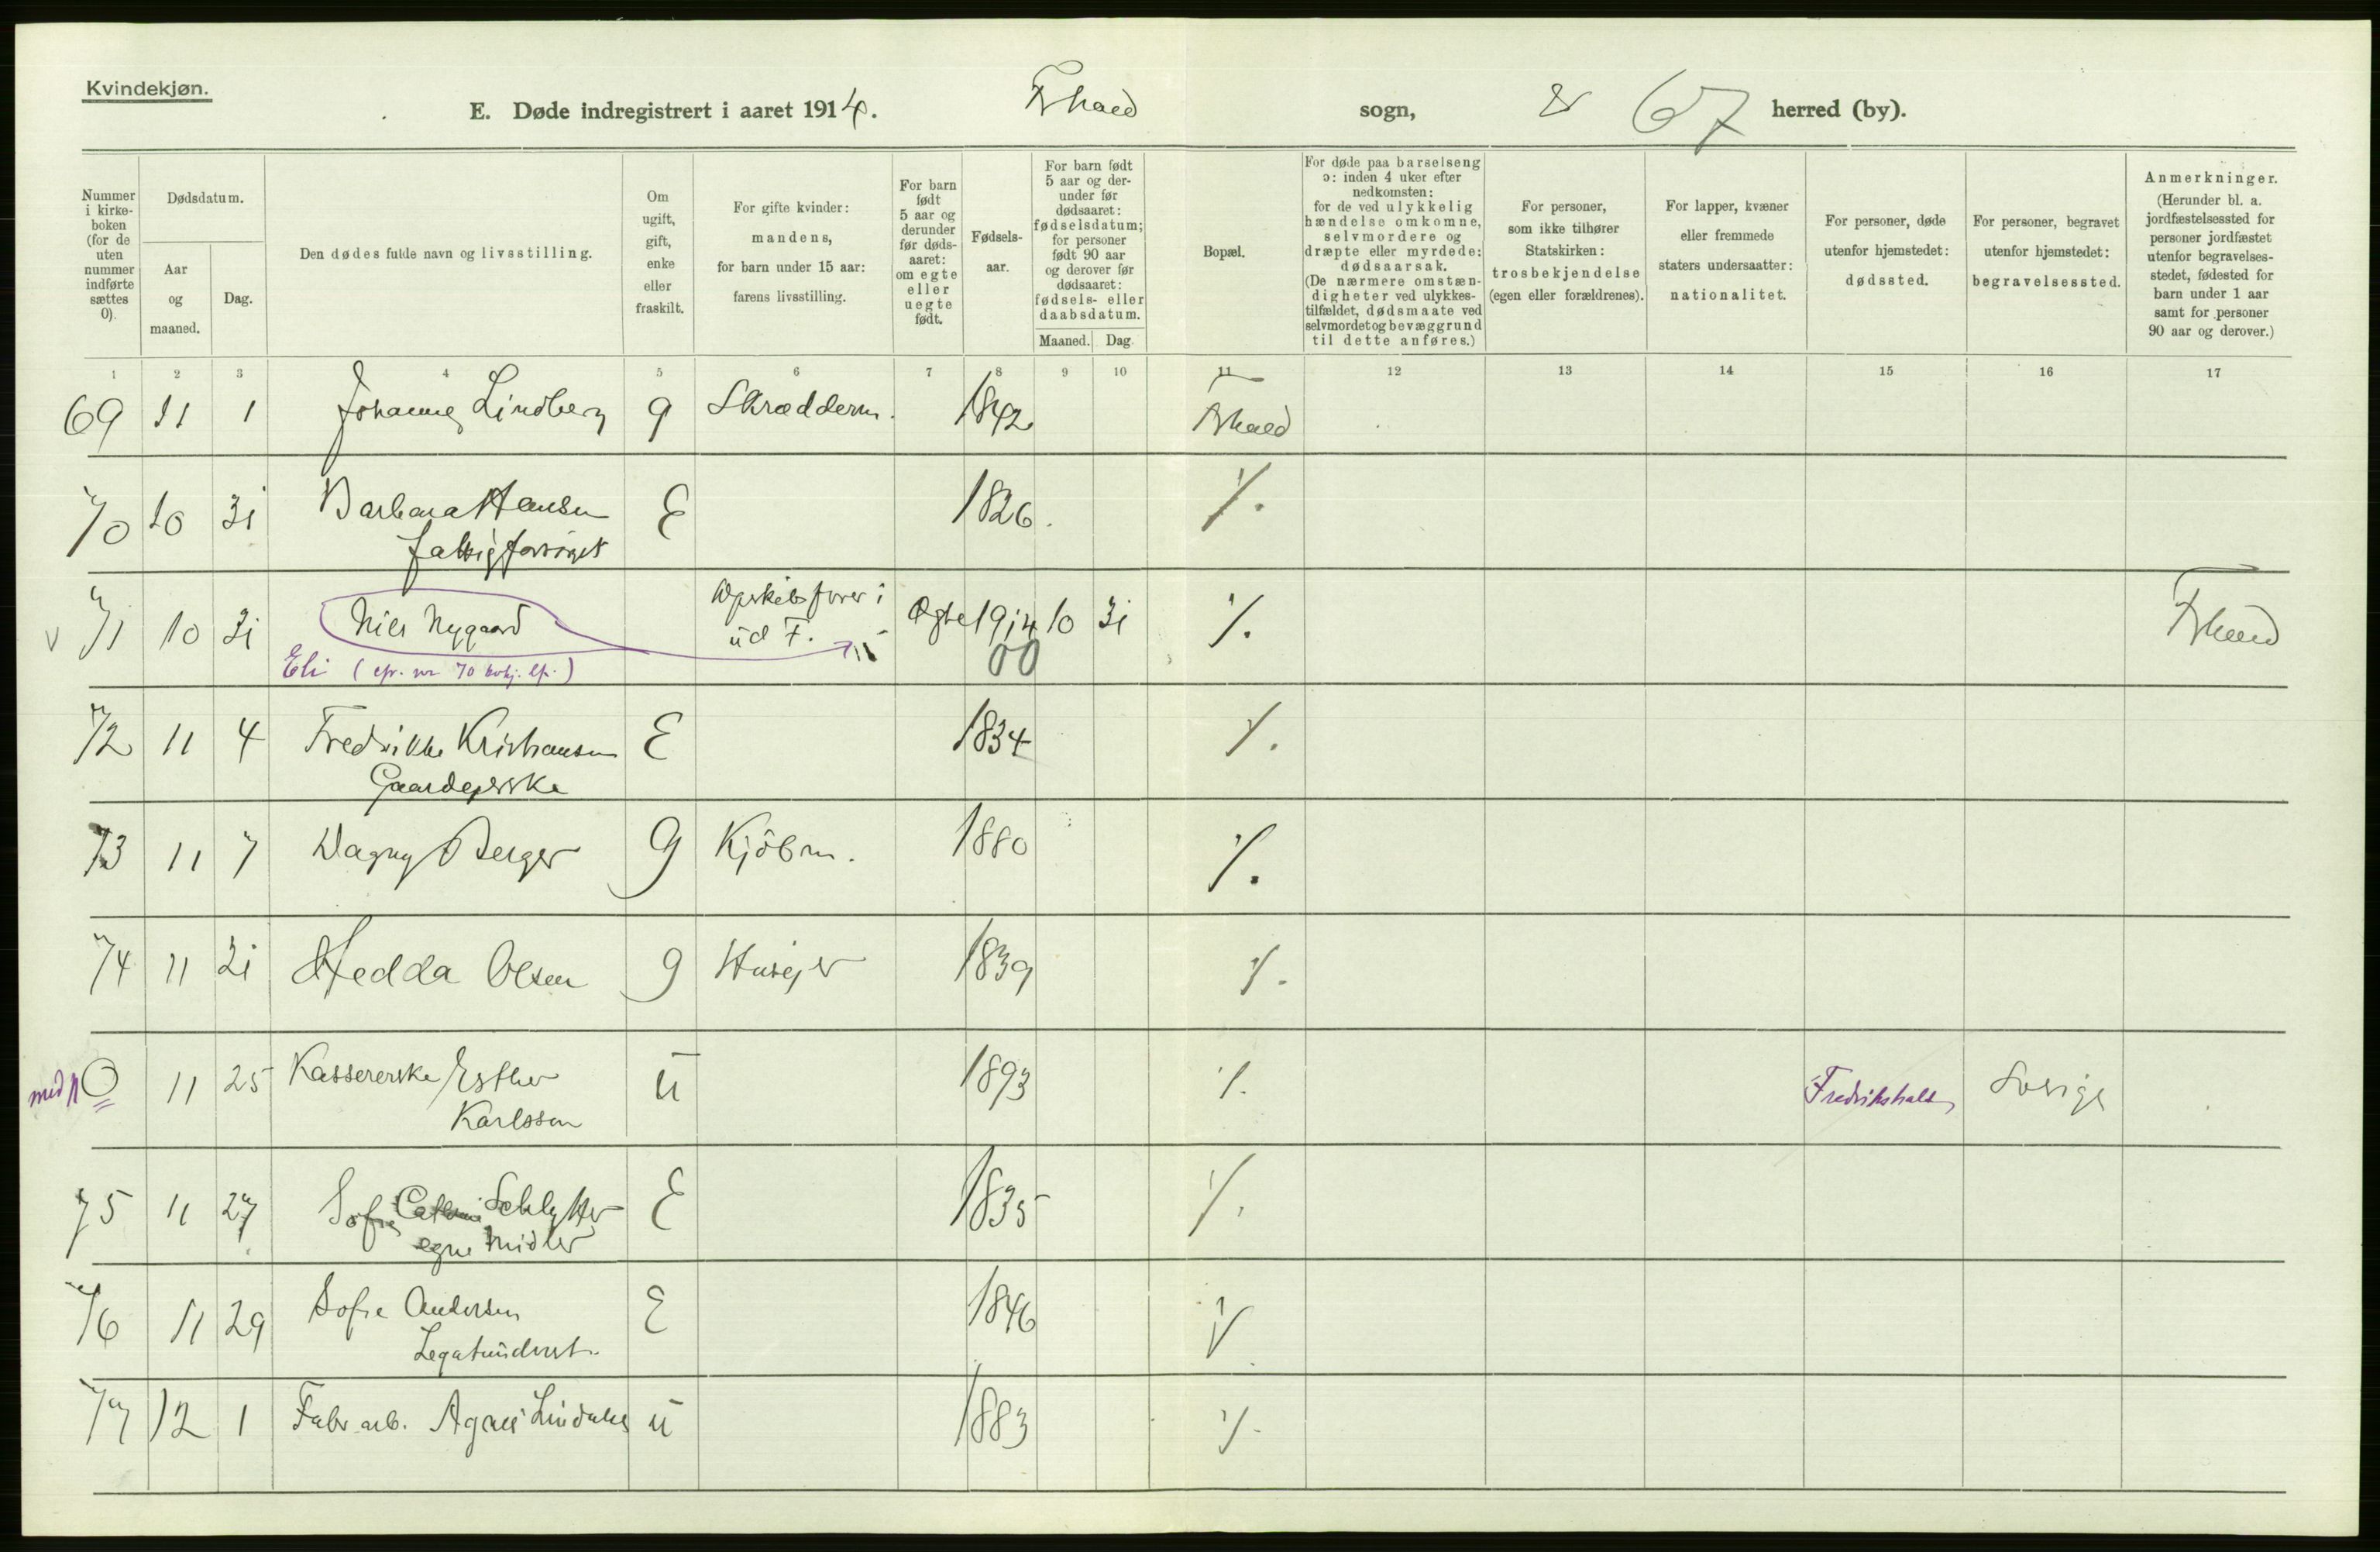 Kvindekjøn.
E. Døde indregistrert i aaret 1914. Fhald sogn, 67 herred (by).
Nummer i kirkeboken (for de uten nummer indførte sættes 0).
Dødsdatum.
Aar og maaned.
Dag.
Den dødes fulde navn og livsstilling.
Om ugift, gift, enke eller fraskilt.
For gifte kvinder: mandens, for barn under 15 aar: farens livsstilling.
For barn født 5 aar og derunder før dødsaaret: om egte eller uegte født.
Fødselsaar.
For barn født 5 aar og derunder før dødsaaret: fødselsdatum; for personer født 90 aar og derover før dødsaaret: fødsels- eller daabsdatum.
Maaned. Dag.
Bopæl.
For døde paa barselseng ɔ: inden 4 uker efter nedkomsten: for de ved ulykkelig hændelse omkomne, selvmordere og dræpte eller myrdede: dødsaarsak. (De nærmere omstændigheter ved ulykkestilfældet, dødsmaate ved selvmordet og bevæggrund til dette anføres.)
For personer, som ikke tilhører Statskirken: trosbekjendelse (egen eller forældrenes).
For lapper, kvæner eller fremmede staters undersaatter: nationalitet.
For personer, døde utenfor hjemstedet: dødssted.
For personer, begravet utenfor hjemstedet: begravelsessted.
Anmerkninger. (Herunder bl. a. jordfæstelsessted for personer jordfæstet utenfor begravelsesstedet, fødested for barn under 1 aar samt for personer 90 aar og derover.)
1 2 3 4 5 6 7 8 9 10 11 12 13 14 15 16 17
69 11 1 Johanne Lindberg g Skrædderm. 1842 Fhald
70 10 31 Barbara Hansen E 1826. %.
71 10 31 Nils Nygaard ud F. Ægte 1914 10 31 %. Fhald
00
Eli (cfr. nr 70 )
72 11 4 Fredrikke Kristiansen E 1834 %.
Gaardejerske
73 11 7 Dagny Berger g Kjöbm. 1880 %.
74 11 21 Hedda Olsen g Husejer 1839 %.
med 0 11 25 Kassererske Esther ü 1893 %. Fredrikshald Sverige
Karlsson
75 11 27 Sofie Schlytter E 1835 %.
egne midler
76 11 29 Sofie Andersen E 1846 %.
Legatunderst.
77 12 1 Fabr. arb. Agnes ü 1883 %.